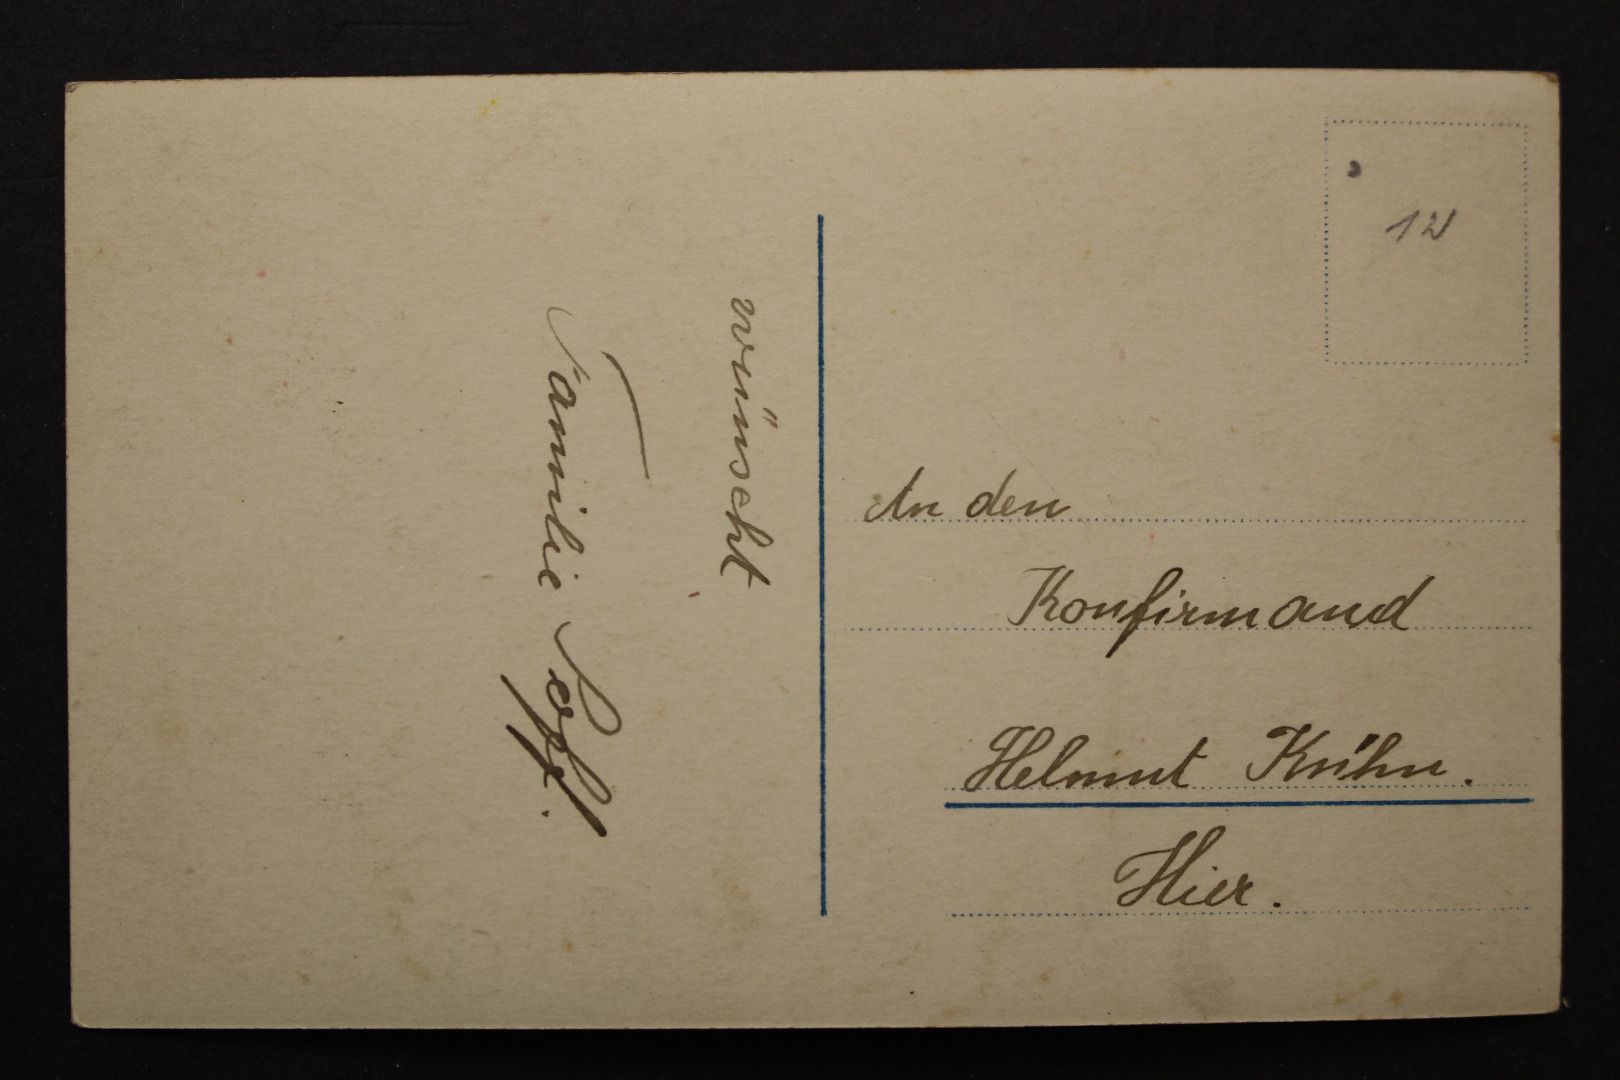 wünscht
Familie Popp.
An den
Konfirmand
Helmut Kühn.
Hier.